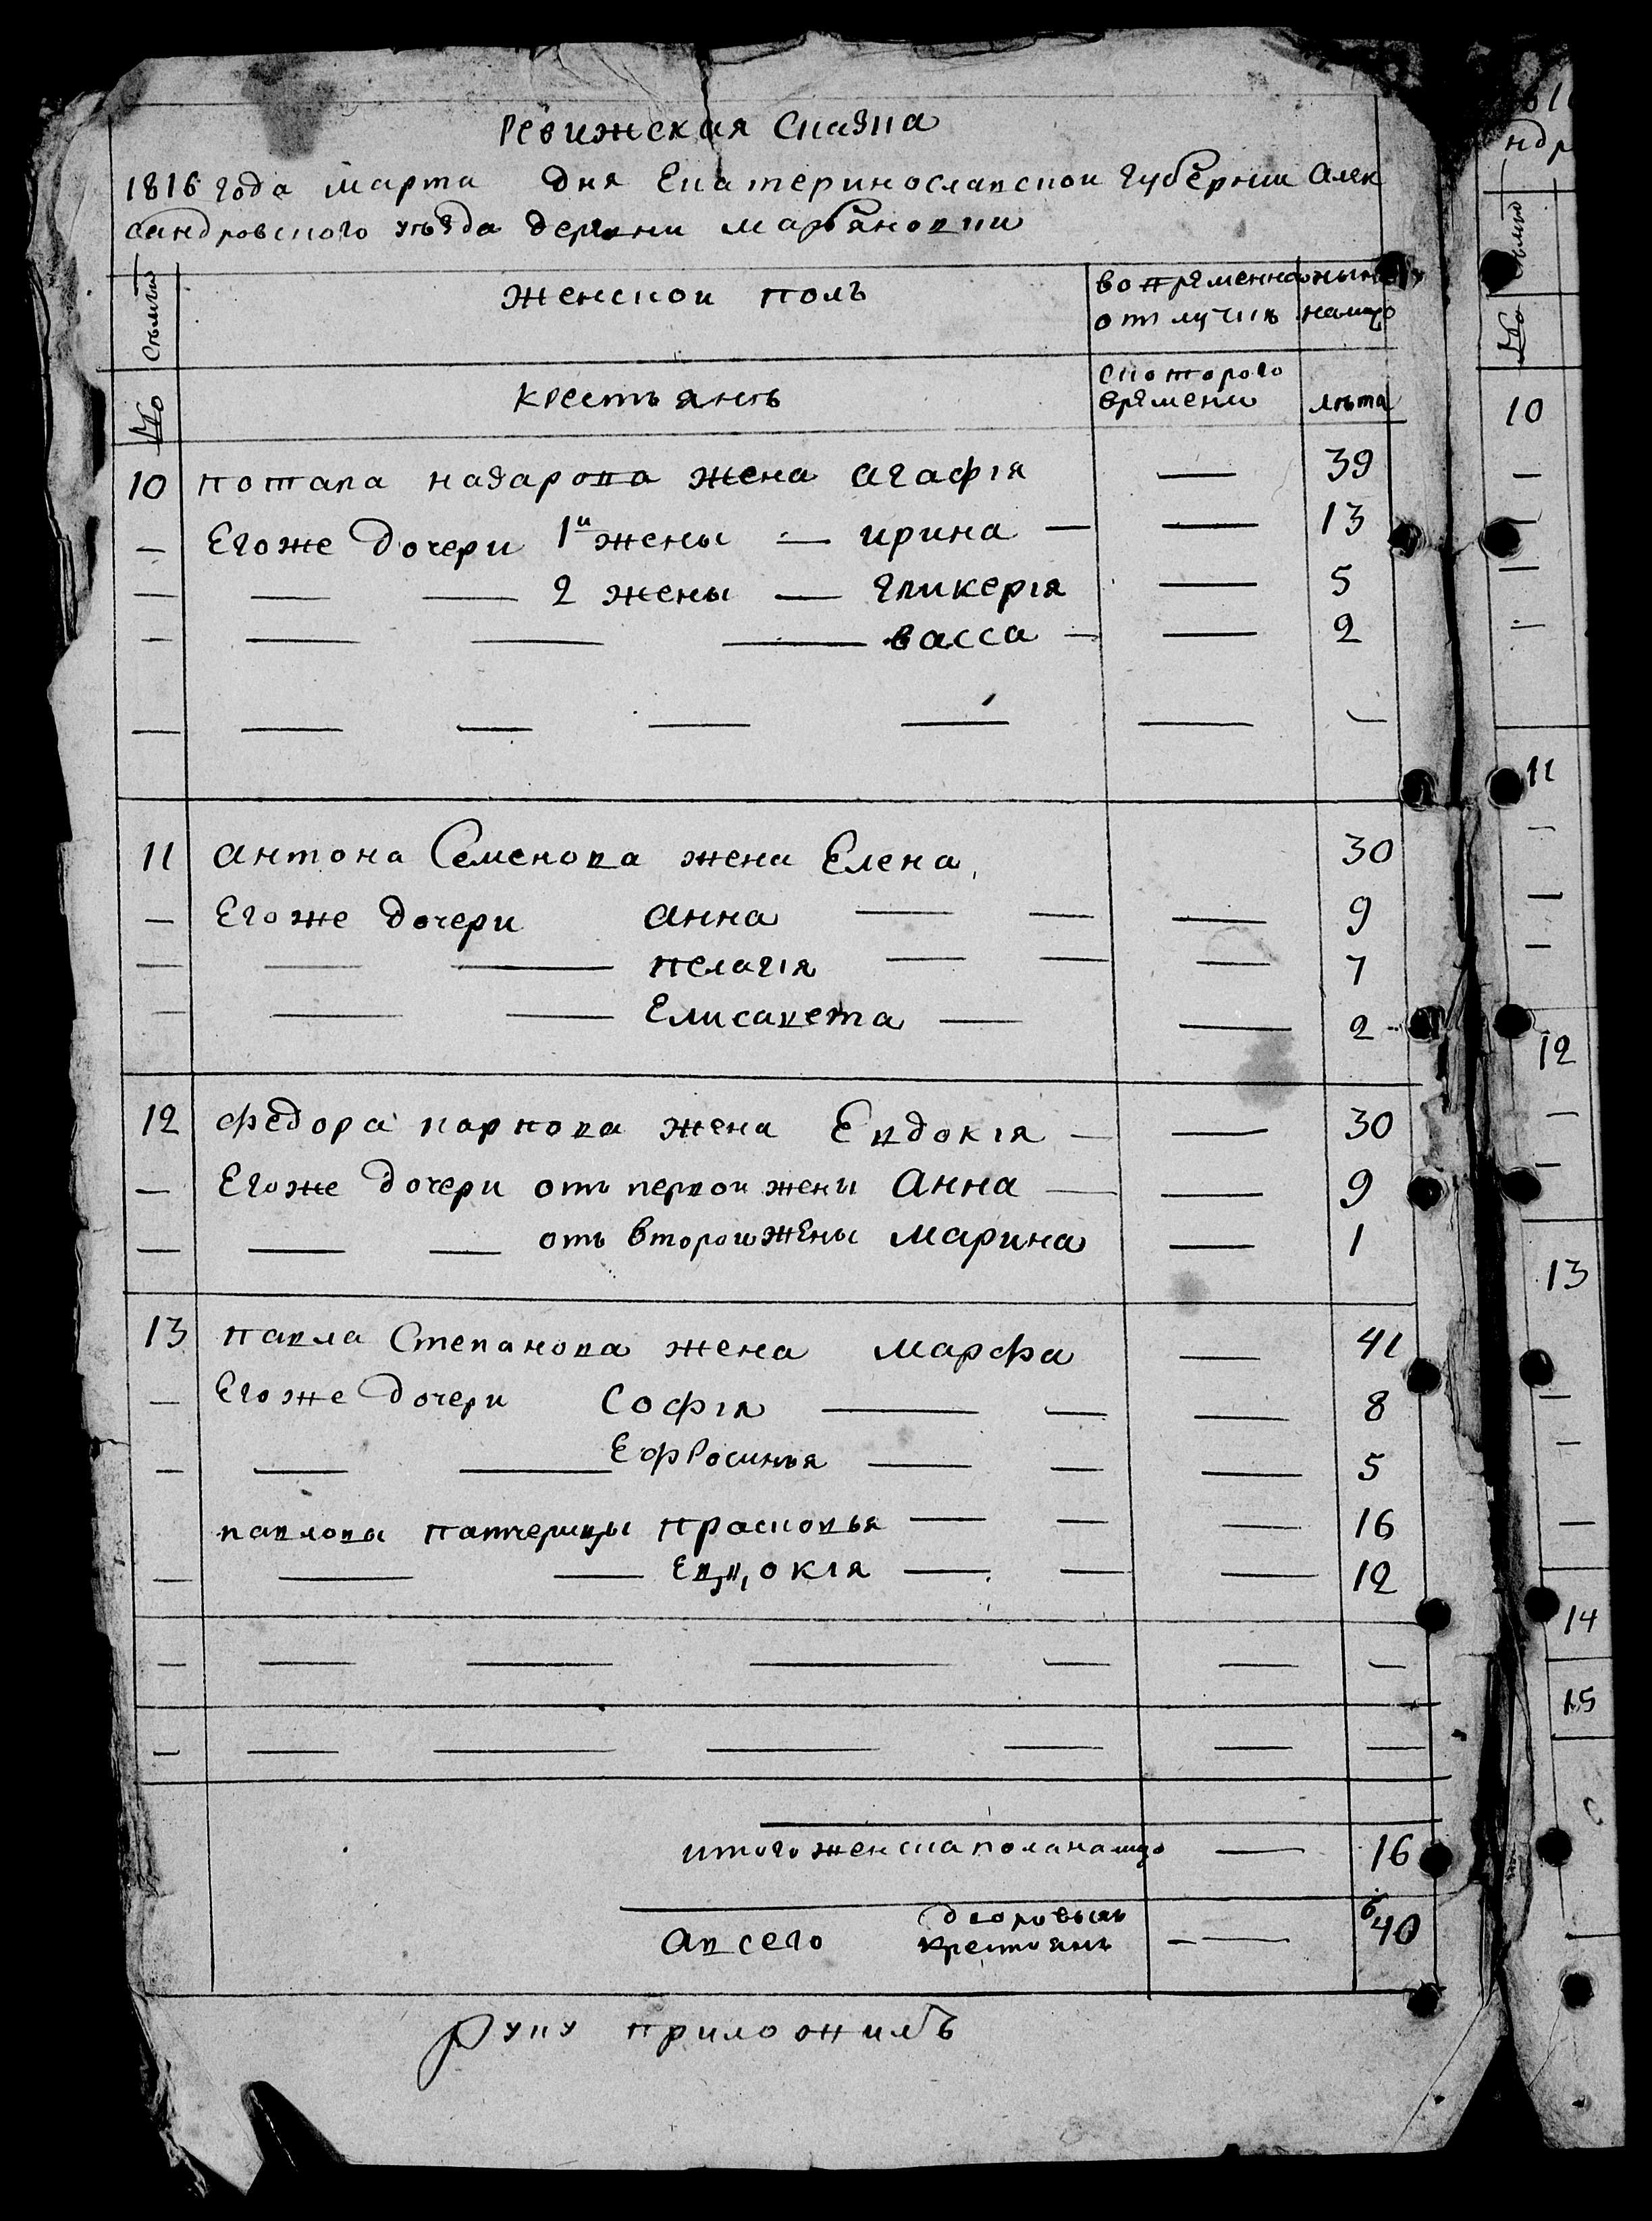 Ревижская Сказка
1816 года марта дня Екатеринославской Губернии Алек
сандровского уѣзда деревни марьяновки
Семьи
женской полъ
во временной
отлучкѣ
ныне
налицо
№
крестьянъ
с которого
времени
лѣта
10 потапа назарова жена агафія — 39
— Егоже дочери 1й жены — ирина — — 13
— — — 2 жены — гликерія — 5
— — — — васса — — 2
— — — — — — —
11 антона Семенова жена Елена 30
— Егоже дочери анна — — — 9
— — — пелагія — — — 7
— — — Елисавета — — 2
12 федора карпова жена Евдокія — — 30
— Егоже дочери отъ первой жены Анна — — 9
— — — отъ второй жены марина — 1
13 павла Степанова жена марфа — 41
— Егоже дочери Софія — — — 8
— — — Ефросинья — — — 5
павловы патчерицы прасковья — — — 16
— — — Евдокія — — — 12
— — — — — — —
— — — — — — —
итого женска пола налицо — 16
Авсего дворовыхъ — 6
крестьянъ 40
Руку приложилъ
81
ндр
№
10
11
12
13
14
15